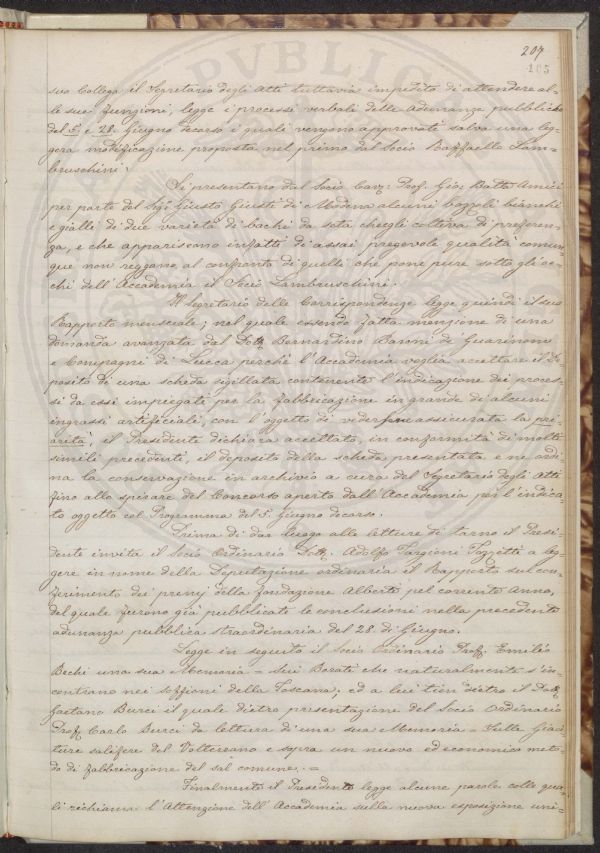 207
105
suo Collega il Segretario degli Atti tuttavia impedito di attendere al-
le sue funzioni, legge i processi verbali delle Adunanze pubbliche
del 5. e 28. Giugno decorso i quali vengono approvati salva una leg-
gera modificazione proposta nel primo dal Socio Raffaello Lam-
bruschini.
Si presentano dal Socio Cav: Prof. Gio: Batta Amici
per parte del Sig. Giusto Giusti di Modena alcuni Bozzoli bianchi
e gialli di due varietà di bachi da seta ch'egli coltiva di preferen-
za, e che appariscono infatti di assai pregevole qualità comun-
que non reggano al confronto di quelli che pone pure sotto gli oc-
chi dell'Accademia il Socio Lambruschini.
Il Segretario delle Corrispondenze legge quindi il suo
Rapporto mensuale; nel quale essendo fatta menzione di una
domanda avanzata dal Dott. Bernardino Baroni de Guarinoni
e Compagni di Lucca perchè l'Accademia voglia accettare il De-
posito di una scheda sigillata contenente l'indicazione dei proces-
si da essi impiegati per la fabbricazione in grande di alcuni
ingrassi artificiali, con l'oggetto di vederne assicurata la pri-
orità, il Presidente dichiara accettato, in conformità di molti
simili precedenti, il deposito della scheda presentata e ne ordi-
na la conservazione in archivio a cura del Segretario degli Atti
fino allo spirare del Concorso aperto dall'Accademia per l'indica-
to oggetto col Programma del 5. Giugno decorso.
Prima di dar luogo alle letture di turno il Presi-
dente invita il Socio Ordinario Dott. Adolfo Targioni Tozzetti a leg-
gere in nome della Deputazione ordinaria il Rapporto sul con-
ferimento dei premj della fondazione Alberti pel corrente Anno,
del quale furono già pubblicate le conclusioni nella precedente
adunanza pubblica straordinaria del 28. di Giugno.
Legge in seguito il Socio Ordinario Prof. Emilio
Bechi una sua Memoria = Sui Borati che naturalmente s'in-
contrano nei soffioni della Toscana; ed a lui tien dietro il Dott.
Gaetano Burci il quale dietro presentazione del Socio Ordinario
Prof. Carlo Burci da lettura di una sua Memoria = Sulle Giaci-
ture salifere del Volterrano e sopra un nuovo ed economico meto-
do di fabbricazione del sal comune. =
Finalmente il Presidente legge alcune parole colle qua-
li richiama l'Attenzione dell'Accademia sulla nuova esposizione uni-